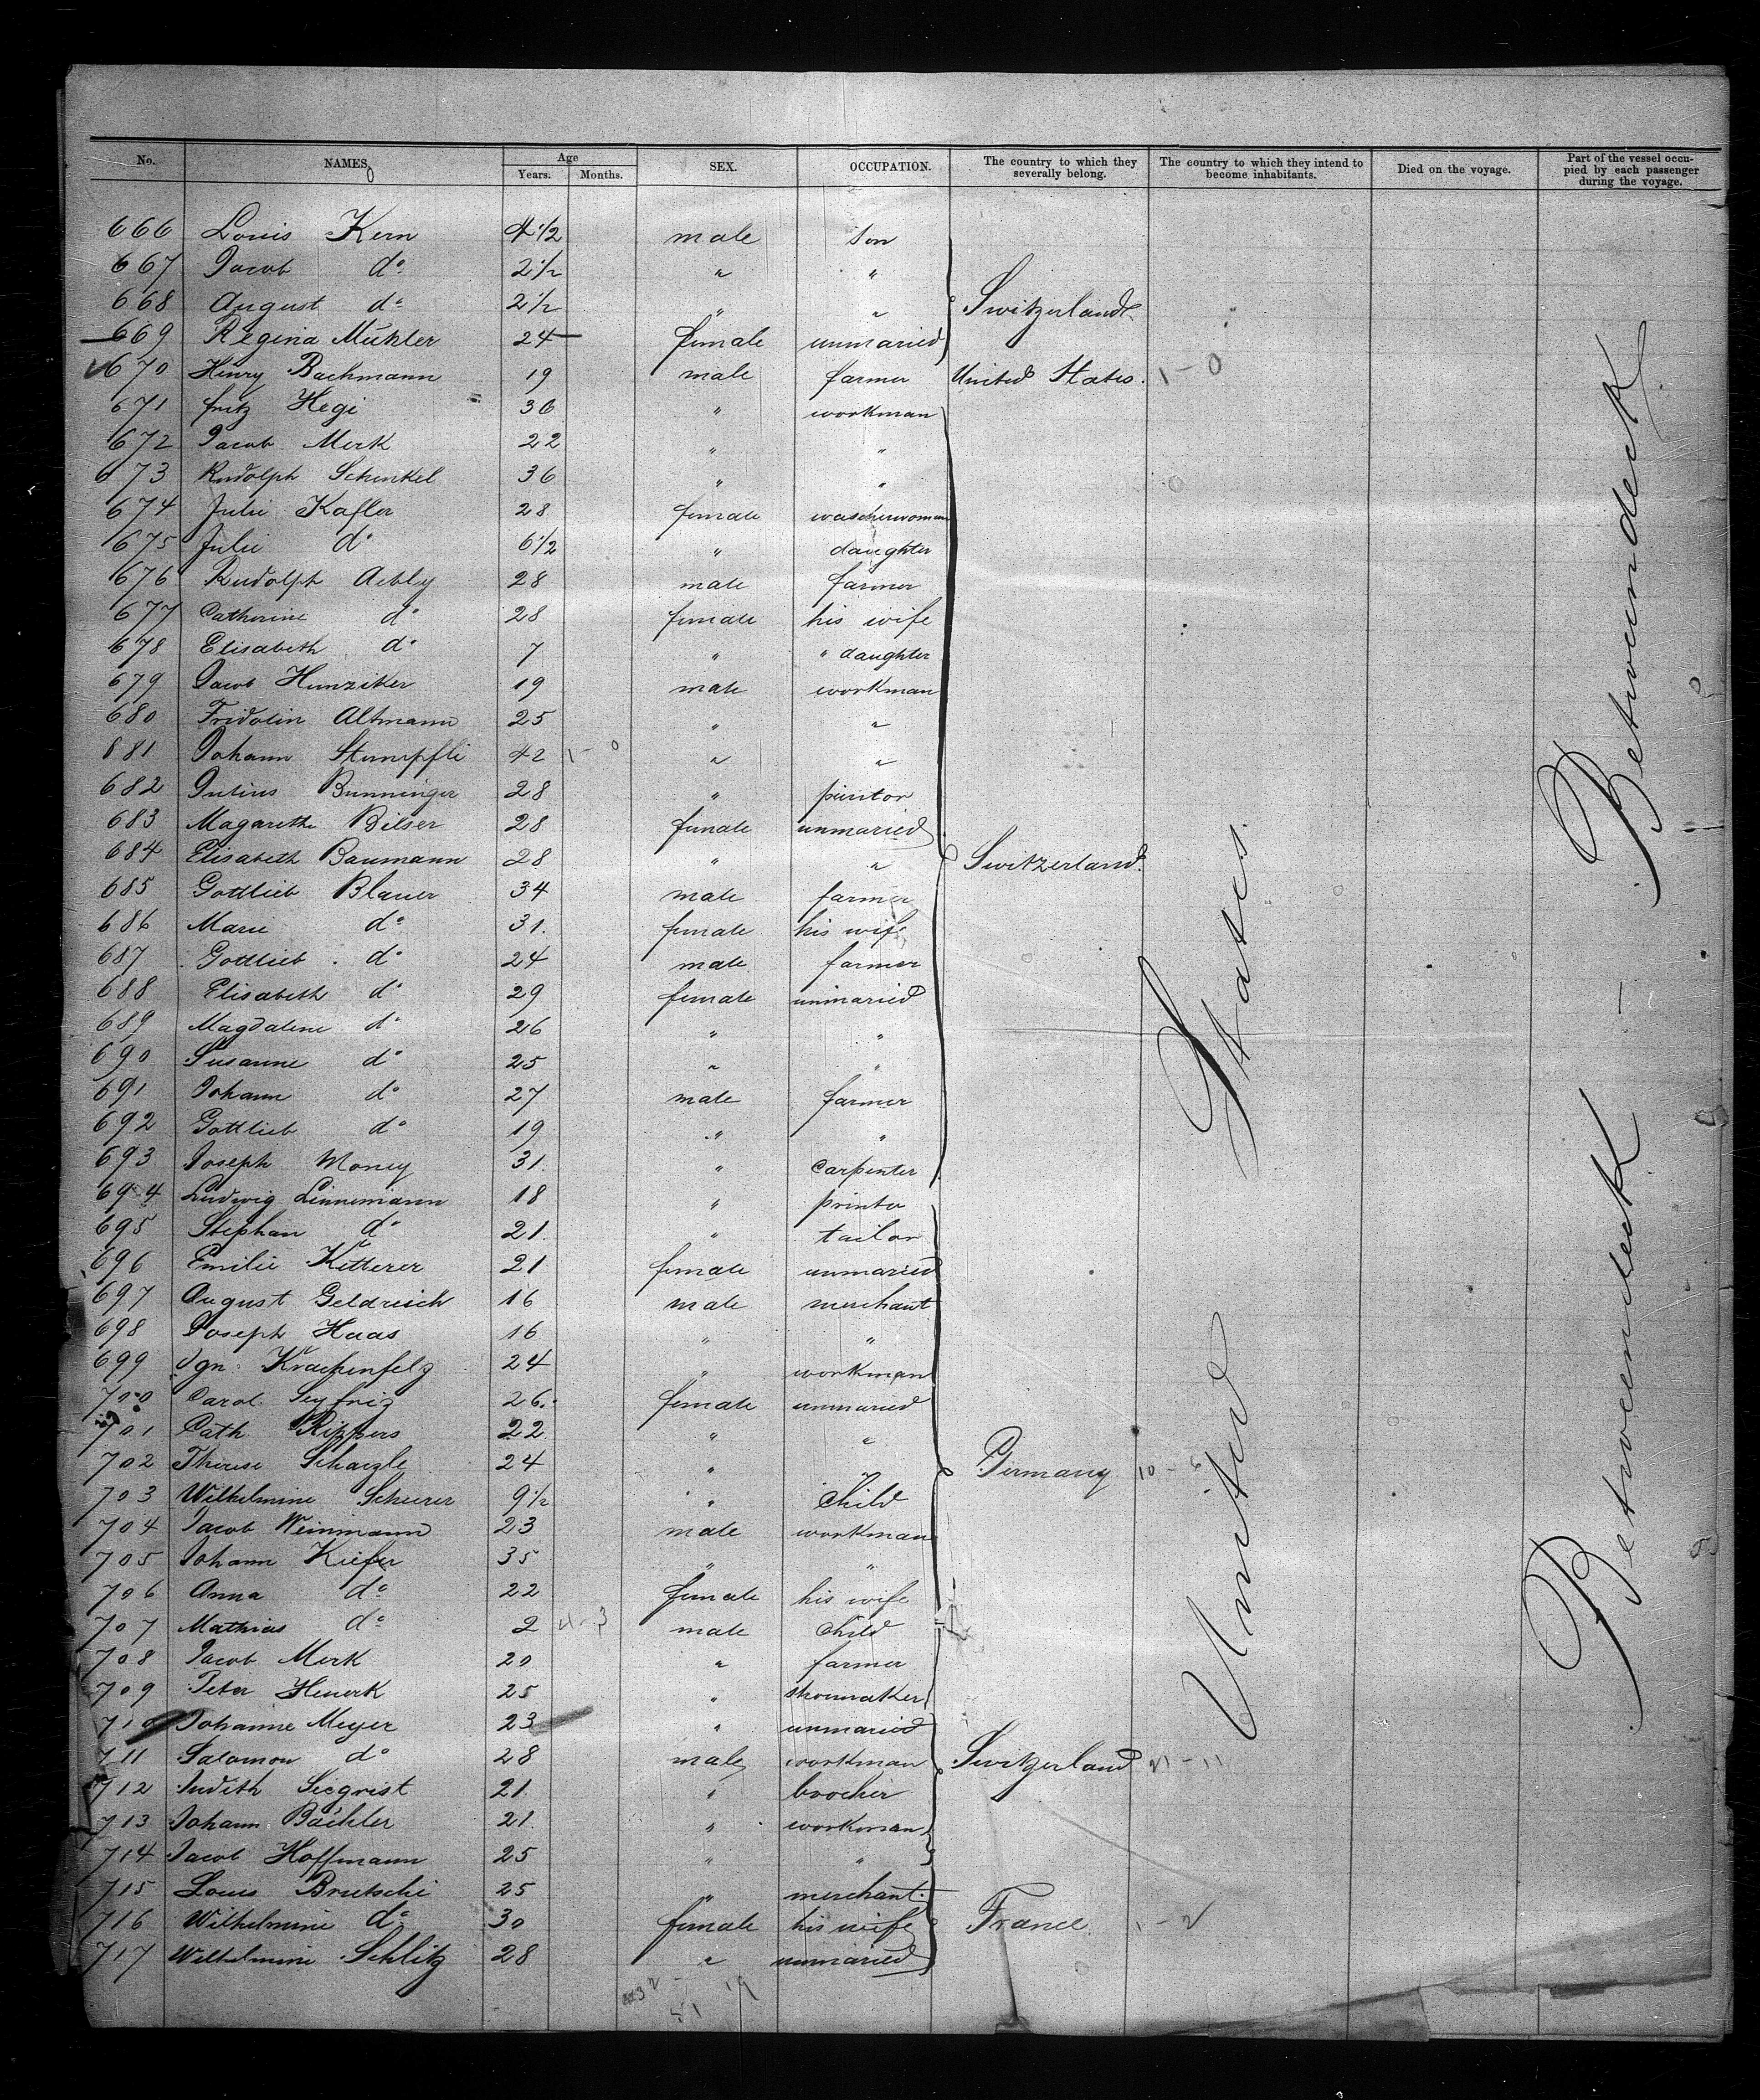 No. NAMES Age Years. Months. SEX. OCCUPATION. The country to which they severally belong. The country to which they intend to become inhabitants. Died on the voyage. Part of the vessel occupied by each passenger during the voyage.
666 Louis Kern 4 1/2 male son
667 Jacob do 2 1/2 " "
668 August do 2 1/2 " " Switzerland
669 Regina Mühler 24 female unmaried
670 Henry Bachmann 19 male farmer United States. 1-0
671 Fritz Hegi 36 " workman
672 Jacob Merk 22 " "
673 Rudolph Schenkel 36 " "
674 Julie Kafler 28 female wascherwoman
675 Julie do 6 1/2 " daughter
676 Rudolph Aebly 28 male farmer
677 Catherine do 28 female his wife
678 Elisabeth do 7 " " daughter
679 Jacob Hunziker 19 male workman
680 Fridolin Altmann 25 " "
681 Johann Stumpfli 42 1-0 " "
682 Julius Bunninger 28 " paintor
683 Magarethe Bilser 28 female unmaried
684 Elisabeth Baumann 28 " " Switzerland.
685 Gottlieb Blauer 34 male farmer
686 Marie do 31. female his wife
687 Gottlieb do 24 male farmer
688 Elisabeth do 29 female unmaried
689 Magdalene do 26 " "
690 Susanne do 25 " "
691 Johann do 27 male farmer
692 Gottlieb do 19 " "
693 Joseph Money 31. " carpenter
694 Ludwig Linnemann 18 " printer
695 Stephan do 21. " tailor
696 Emilie Ketterer 21 female unmaried
697 August Geldreich 16 male merchant
698 Joseph Haas 16 " "
699 Ign. Krachenfelz 24 " workman
700 Carol. Seyfriz 26. female unmaried
701 Cath Rippers 22. " "
702 Therese Schaezle 24 " " Germany 10-6
703 Wilhelmine Scheerer 9 1/2 " Child
704 Jacob Weinmann 23 male workman
705 Johann Kiefer 35 " "
706 Anna do 22 female his wife
707 Mathias do 2 male Child
708 Jacob Merk 20 " farmer
709 Peter Heuerk 25 " shoemaker
710 Johanne Meyer 23 " unmaried
711 Salomon do 28 male workman Switzerland 21-11
712 Judith Seegrist 21. " broohier
713 Johann Bächler 21. " workman
714 Jacob Hoffmann 25 " "
715 Louis Brutschi 25 " merchant.
716 Wilhelmine do 30 female his wife France 1-2
717 Wilhelmine Schlitz 28 " unmaried
United States.
Betweendeck - Betweendeck
32 - 19
51